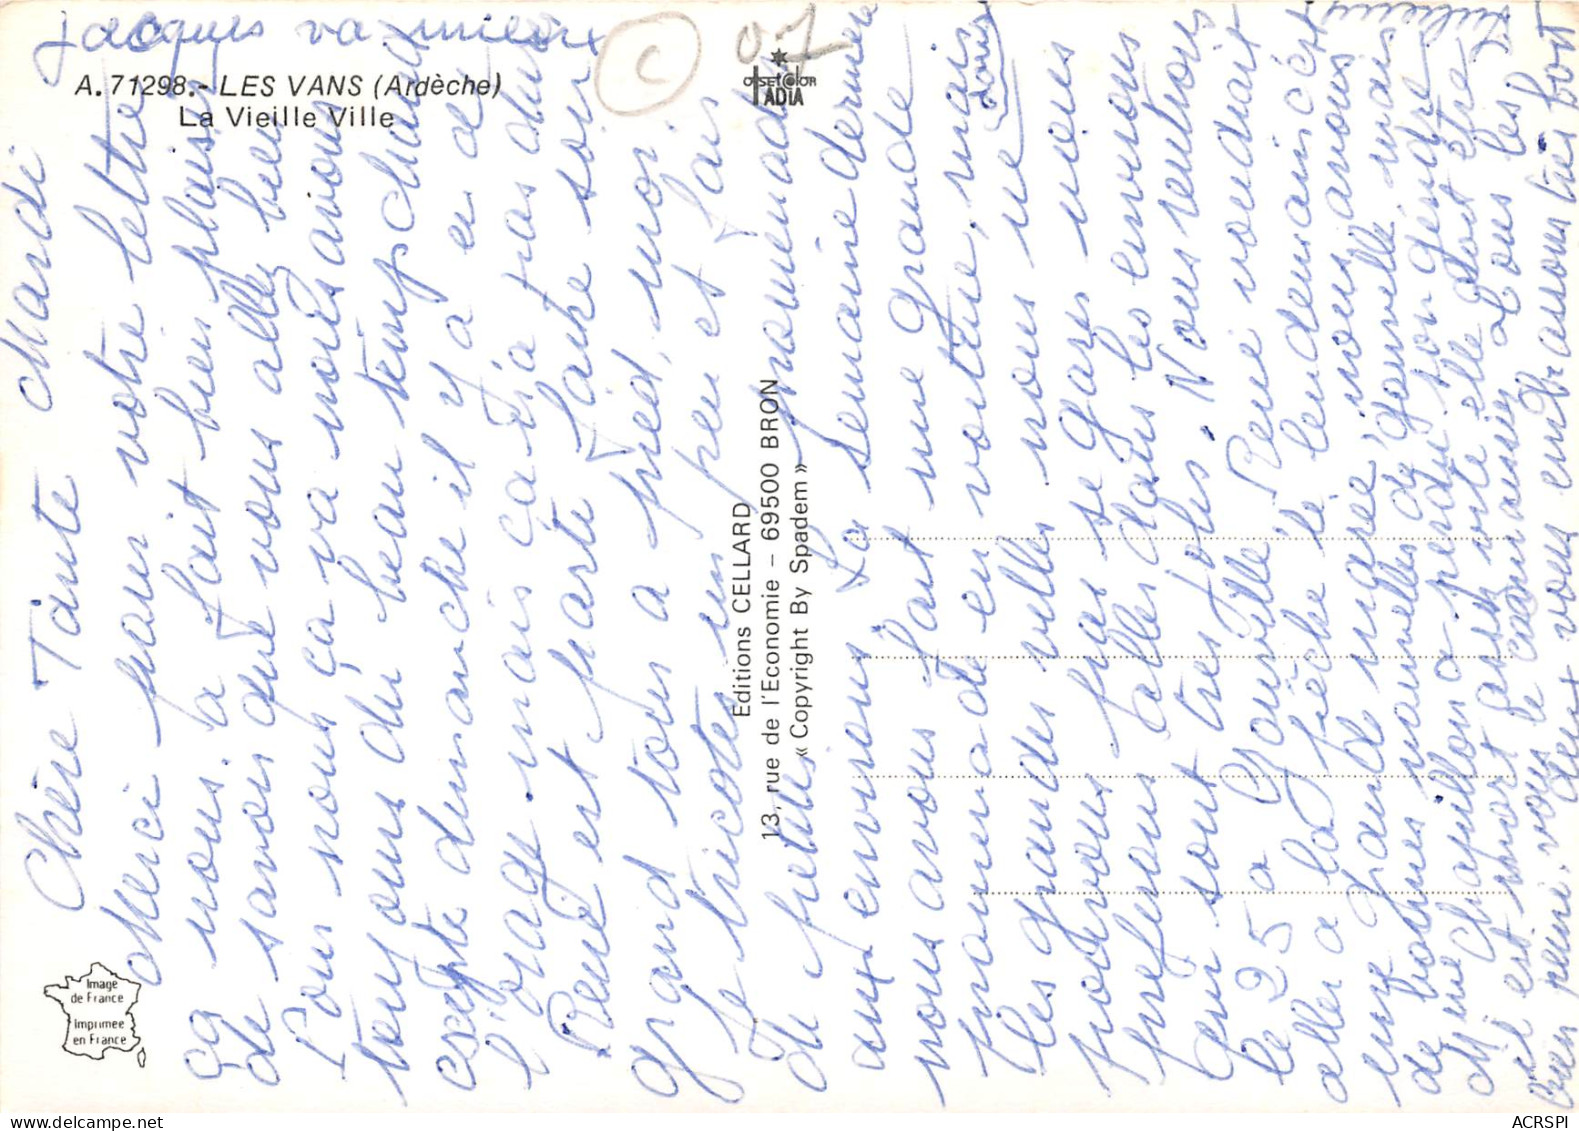 Jacques va mieux
A. 71298.- LES VANS (Ardèche)
La Vieille Ville
OFFSETCOLOR
IADIA
C
07
Image
de France
Imprimée
en France
Editions CELLARD
13, rue de l'Economie – 69500 BRON
« Copyright By Spadem »
Mardi
Chère Tante
Merci pour votre lettre
ça nous a fait bien plaisir
de savoir que vous allez bien
Pour nous ça va nous avons
toujours du beau temps chaud
excepté dimanche il y a eu de
l'orage mais ça n'a pas duré
René est parti faire son
grand tour à pied, moi
je tricote un peu et fais
de petites promenades
aux environs La semaine dernière
nous avons fait une grande
promenade en voiture, mais
les grandes villes nous ne
pouvons pas se garer nous
préférons aller dans les environs
qui sont très jolis. Nous rentrons
le 25 à Gouville René voudrait
aller à la pêche le lendemain c'est
une grande marée, nous avons
de bonnes nouvelles de
Mme Chapillon a perdu son gendre
il est mort
bien puni. vous
deux vous embrassons très fort
ACRSPI